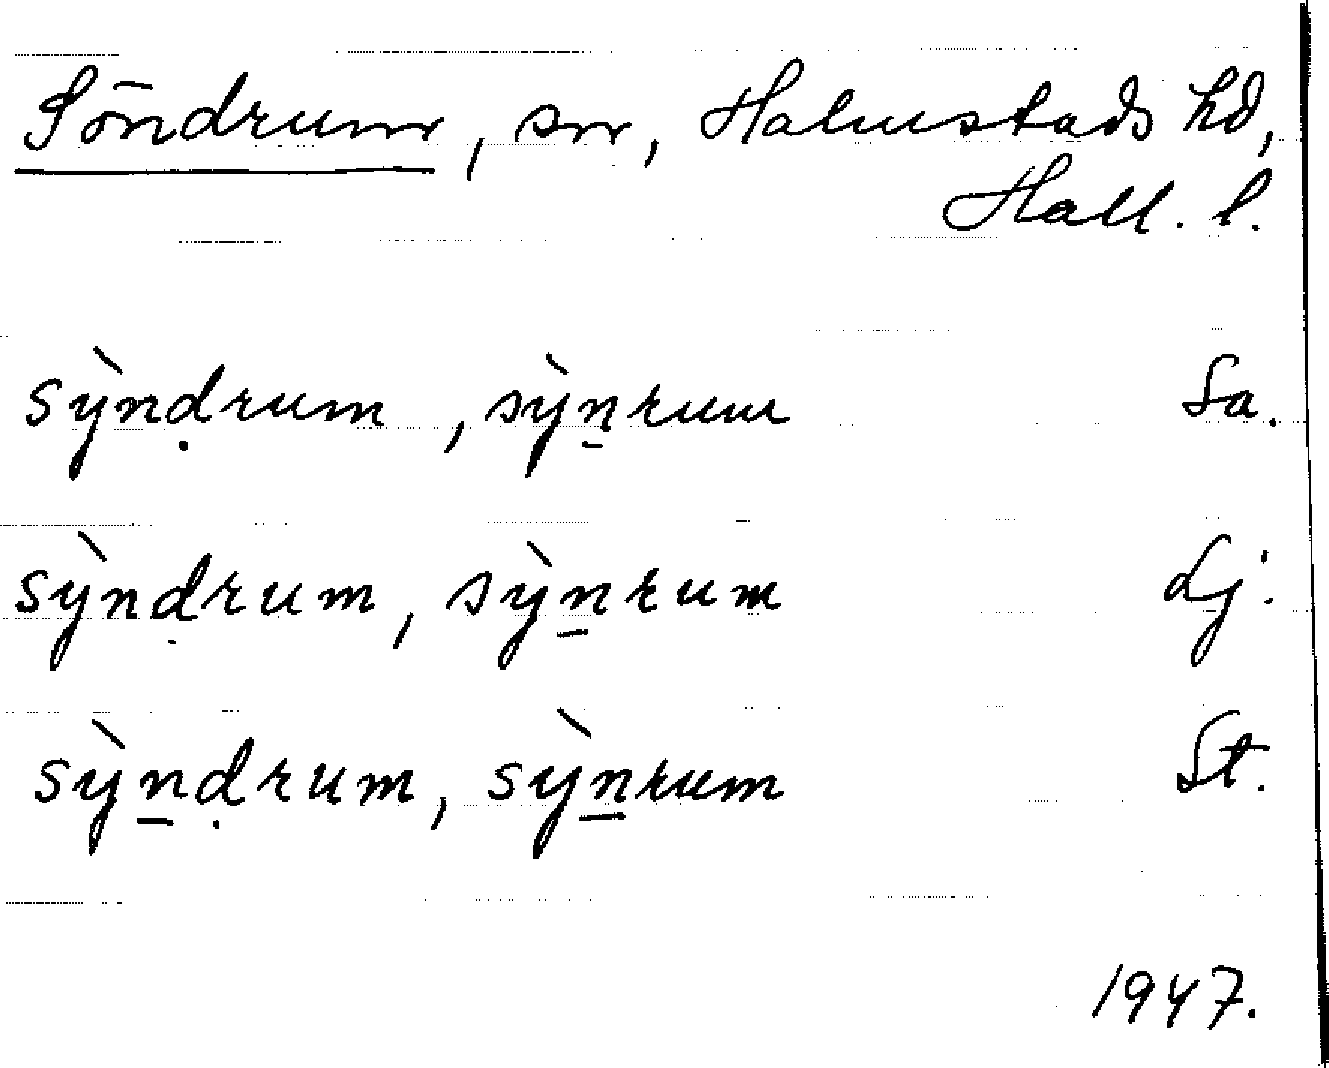 Söndrum, sn, Halmstads hd,
Hall. l.
sỳ̖nḍrum, sỳṉrum Sa.
sỳnḍrum, sỳṉrum Lj.
sỳṉḍrum, sỳṉrum St.
1947.